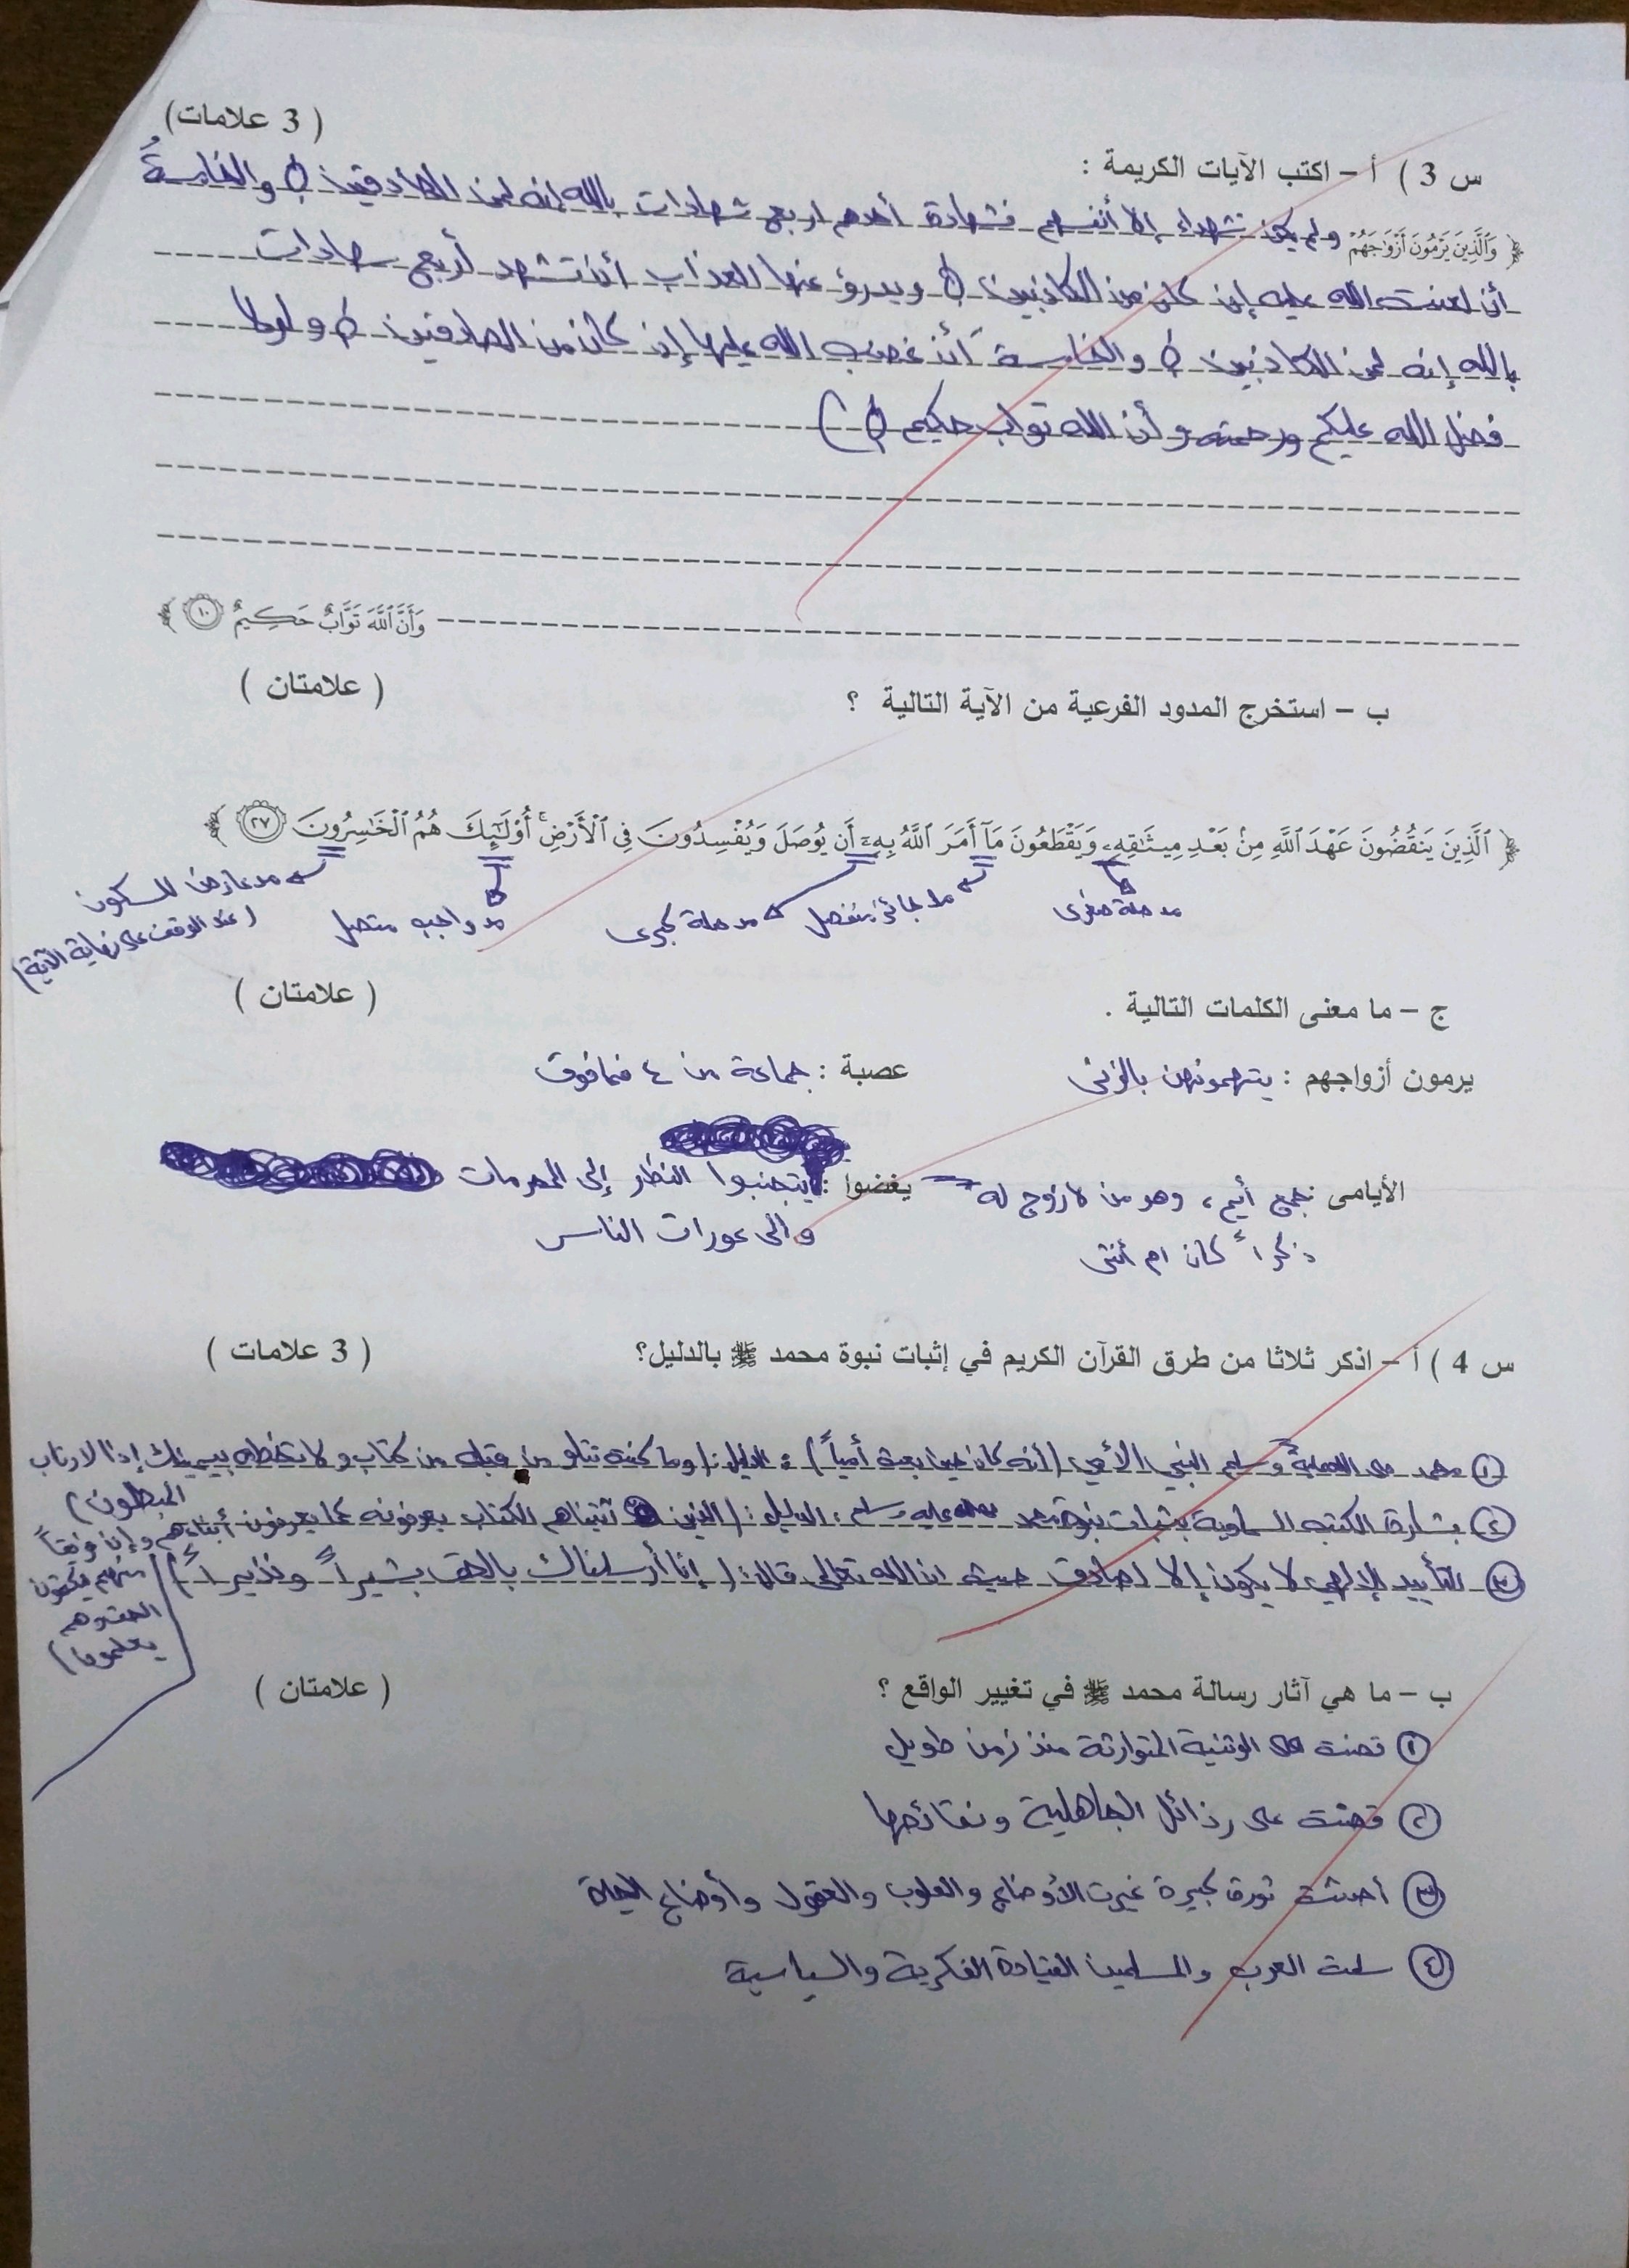 ( 3 علامات)
س 3 ) أ – اكتب الآيات الكريمة :
﴿ وَٱلَّذِينَ يَرْمُونَ أَزْوَٰجَهُمْ ولم يكن شهداء إلا أنفسهم فشهادة أحدهم اربع شهادات بالله إنه لمن الصادقين و الخامسةُ
أن لعنت الله عليه إن كان من الكاذبين ويدرؤ عنها العذاب أن تشهد أربع شهادات
بالله إنه لمن الكاذبين والخامسة أن غضب الله عليها إن كان من الصادقين ولولا
فضل الله عليكم ورحمته و أن الله تواب حكيم )
وَأَنَّ ٱللَّهَ تَوَّابٌ حَكِيمٌ ١٠ ﴾
ب – استخرج المدود الفرعية من الآية التالية ؟ ( علامتان )
﴿ ٱلَّذِينَ يَنقُضُونَ عَهْدَ ٱللَّهِ مِنۢ بَعْدِ مِيثَٰقِهِۦ وَيَقْطَعُونَ مَآ أَمَرَ ٱللَّهُ بِهِۦٓ أَن يُوصَلَ وَيُفْسِدُونَ فِى ٱلْأَرْضِ ۚ أُو۟لَٰٓئِكَ هُمُ ٱلْخَٰسِرُونَ ٢٧ ﴾
مد صلة صغرى مد جائز منفصل مد صلة كبرى مد واجب متصل مد عارض للسكون
(عند الوقف على نهاية الآية)
ج – ما معنى الكلمات التالية . ( علامتان )
يرمون أزواجهم : يتهمونهن بالزنى عصبة : جماعة من ٤ فما فوق
الأيامى جمع أيم ، وهو من لا زوج له يغضوا : يتجنبوا النظر إلى المحرمات
ذكراً كان ام أنثى والى عورات الناس
س 4 ) أ – اذكر ثلاثا من طرق القرآن الكريم في إثبات نبوة محمد ﷺ بالدليل؟ ( 3 علامات )
① محمد صلى الله عليه وسلم النبي الأمي (أنه كان حين بعث أمياً) ، الدليل : (وما كنت تتلو من قبله من كتاب و لا تخطه بيمينك إذا لارتاب
المبطلون)
② بشارة الكتب السماوية بثبات نبوة محمد صلى الله عليه وسلم ، الدليل : (الذين آتيناهم الكتاب يعرفونه كما يعرفون أبناءهم وإن فريقاً
منهم ليكتمون
الحق وهم
يعلمون)
③ التأييد الإلهي لا يكون إلا لصادق حيث ان الله تعالى قال : ( إنا أرسلناك بالحق بشيراً ونذيراً )
ب – ما هي آثار رسالة محمد ﷺ في تغيير الواقع ؟ ( علامتان )
① قضت على الوثنية المتوارثة منذ زمن طويل
② قضت على رذائل الجاهلية ونقائصها
③ أحدثت ثورة كبيرة غيرت الأوضاع والقلوب والعقول وأوضاع الحياة
④ سلمت العرب والمسلمين القيادة الفكرية والسياسية